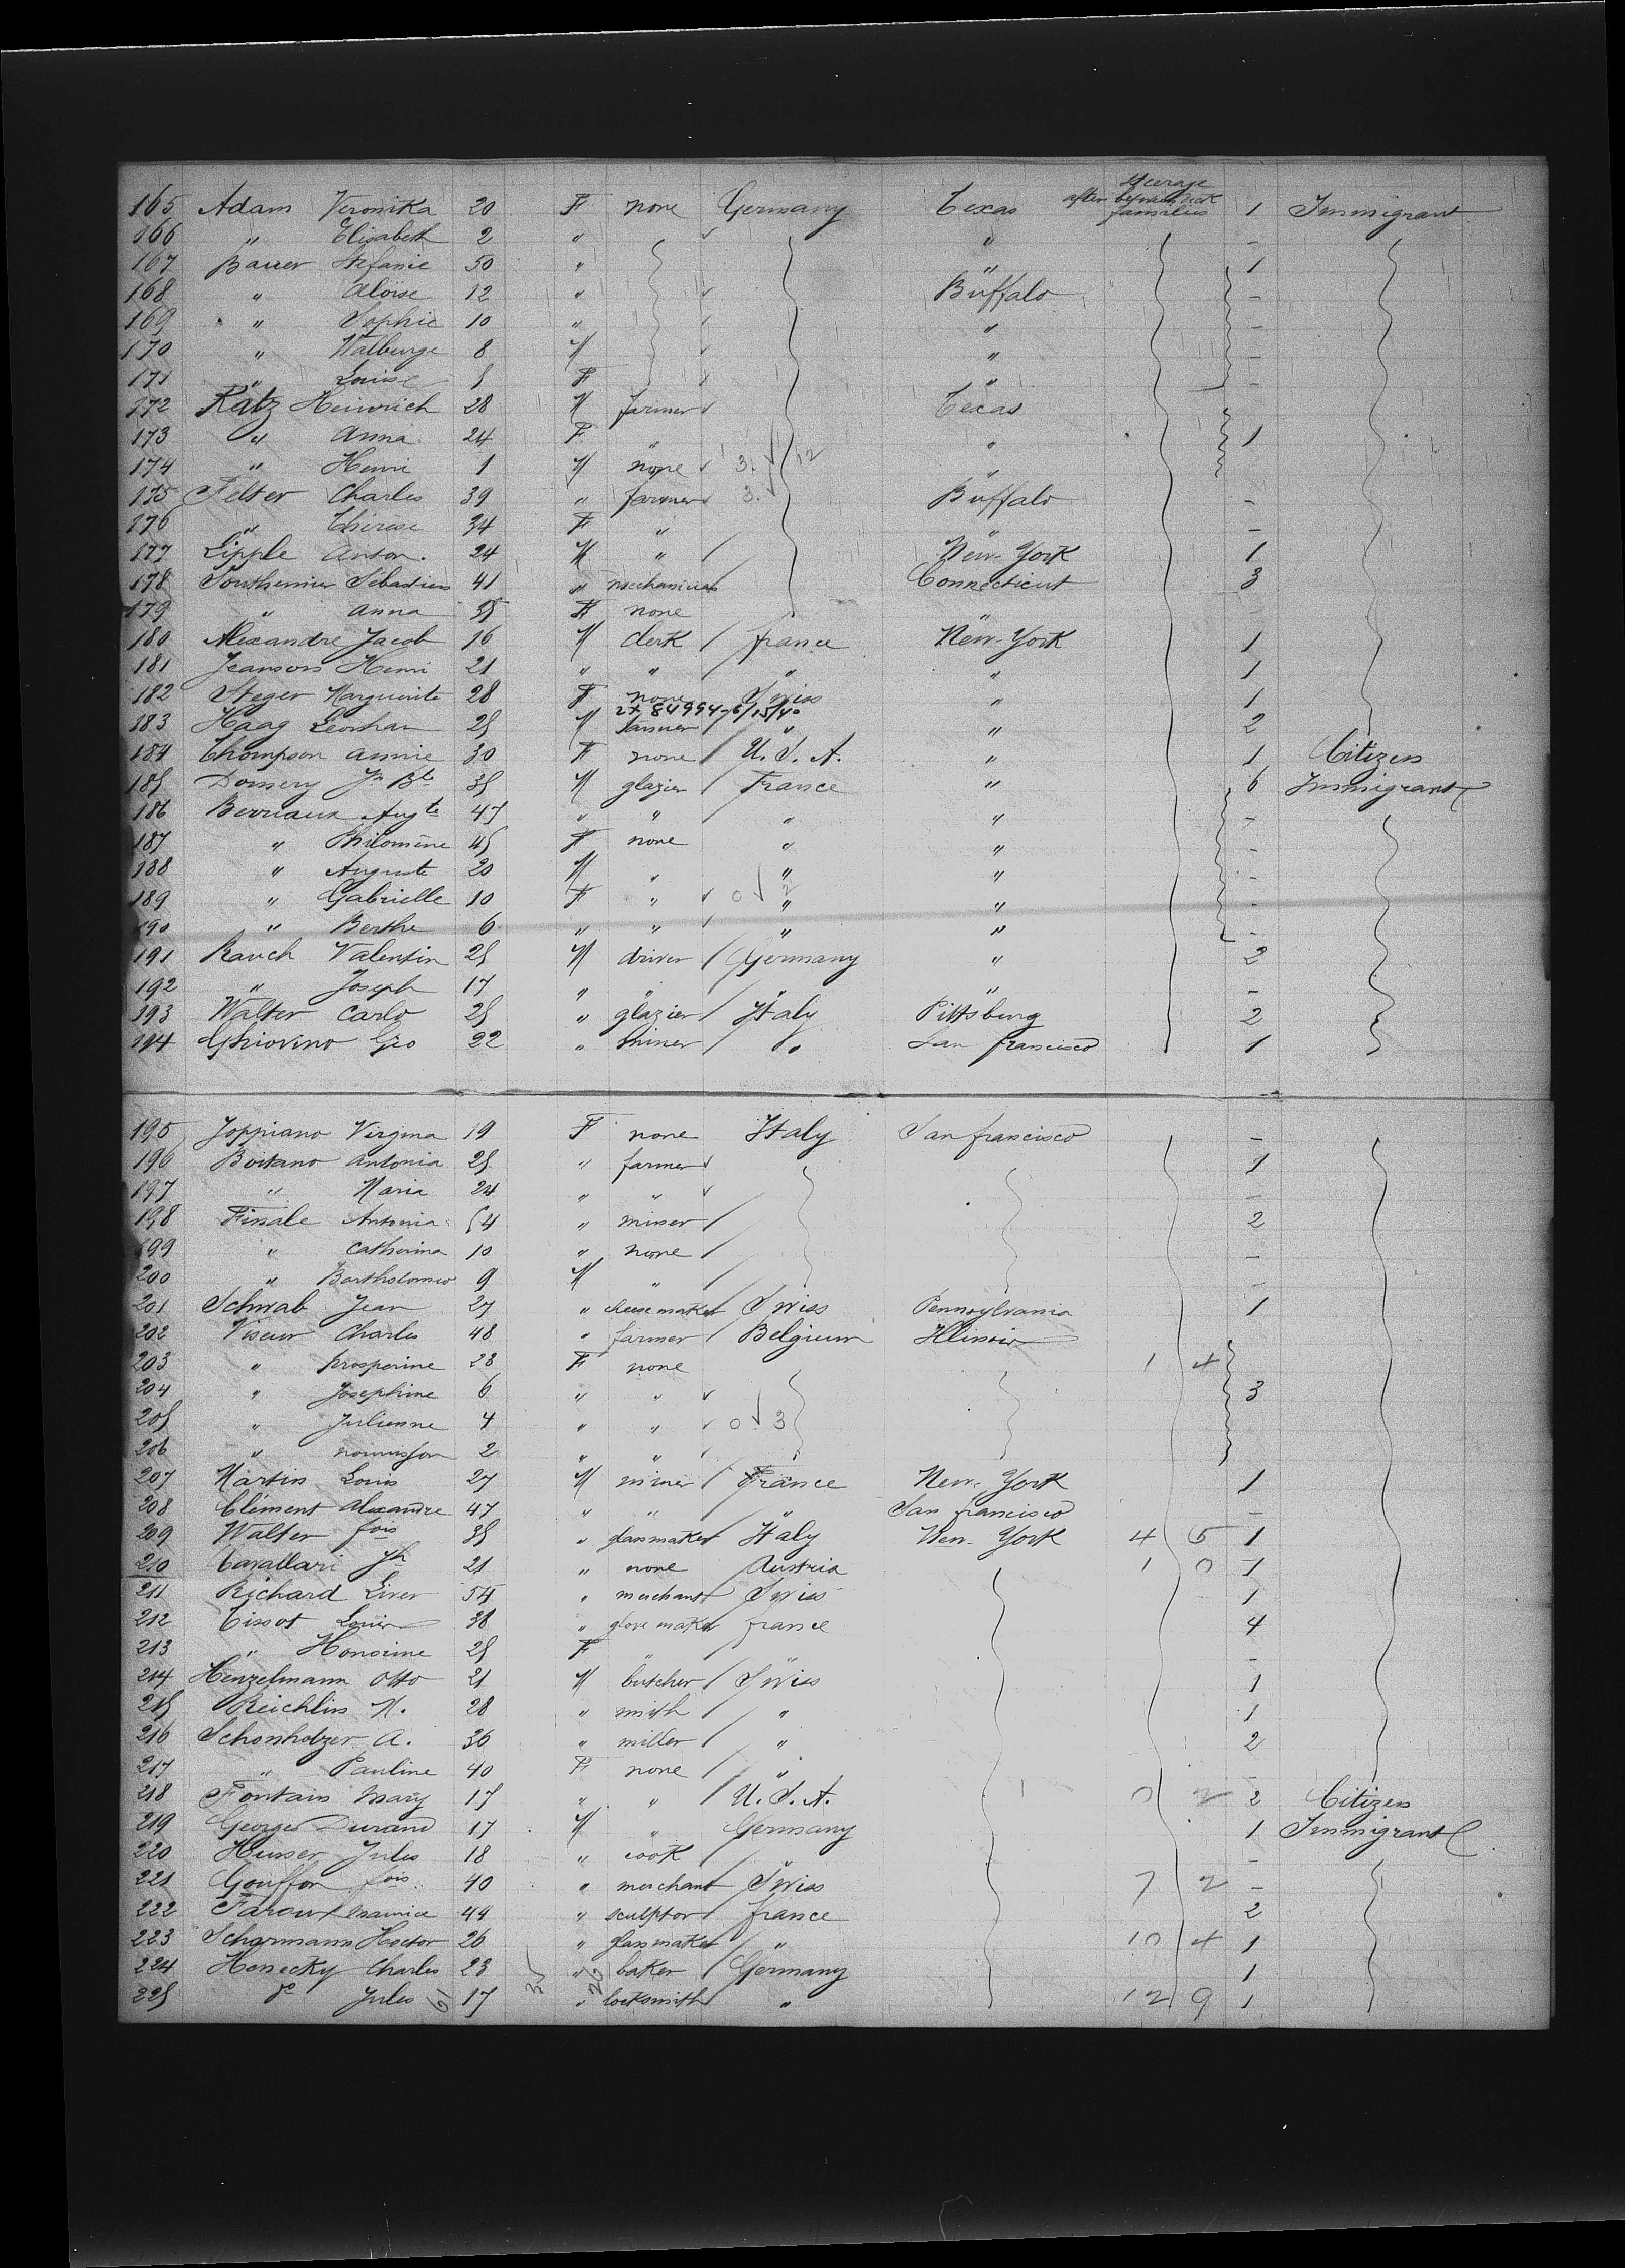 165 Adam Veronika 20 F none Germany Texas steerage after between deck families 1 Immigrant
166 " Elisabeth 2 " "
167 Bauer Stefanie 50 " " 1
168 " Aloise 12 " Buffalo -
169 " Sophie 10 " " -
170 " Walburge 8 M " -
171 " Louise F " -
172 Ratz Heinrich 28 M farmer Texas
173 " Anna 24 F " " 1
174 " Henri 1 M none 3. 12 "
175 Felter Charles 39 " farmer 3. Buffalo -
176 " Thérèse 34 F " " -
177 Lipple Anton. 24 M " New-York 1
178 Sébastien 41 " mechanician Connecticut 3
179 " Anna 35 F none " -
180 Alexandre Jacob 16 M clerk France New-York 1
181 Jeansons Henri 21 " " " " 1
182 Steger Marguerite 28 F none Swiss " 1
2x 84994-6/15/40
183 Haag Leonhar 25 M farmer " " 2
184 Thompson Annie 30 F none U.S.A. " 1 Citizen
185 Domery Jn Bte 35 M glazier France " 6 Immigrant
186 Berriaux Augte 47 " " " " -
187 " Philomène 45 F none " " -
188 " Auguste 20 M " " " -
189 " Gabrielle 10 F " 0 2 " " -
190 " Berthe 6 " " " " -
191 Rauch Valentin 25 M driver Germany " 2
192 " Joseph 17 " " " " -
193 Walter Carlo 25 " glazier Italy Pittsburg 2
194 Ghiorino Gio 22 " miner " San Francisco 1
195 Joppiano Virgina 19 F none Italy San francisco -
196 Boitano Antonia 25 " farmer 1
197 " Maria 24 " " -
198 Finale Antonia 54 " miner 2
199 " Catherina 10 " none -
200 " Bartholomeo 9 M " -
201 Schwab Jean 27 " cheese maker Swiss Pennsylvania 1
202 Viseur Charles 48 " farmer Belgium Illinois
203 " prosperine 28 F none 1 4
204 " Josephine 6 " " 3
205 " Julienne 4 " " 0 3
206 " 2 " "
207 Martin Louis 27 M miner France New-York 1
208 Clément Alexandre 47 " " " San francisco -
209 Walter fois 35 " glassmaker Italy New-York 4 5 1
210 Cavallari Jh 21 " none Austria 1 0 1
211 Richard Liver 54 " merchant Swiss 1
212 Tissot Louis 38 " glove maker france 4
213 " Honorine 25 F " " -
214 Henzelmann Otto 21 M butcher Swiss 1
215 Reichlin M. 28 " smith " 1
216 Schonholzer A. 36 " miller " 2
217 " Pauline 40 F none " -
218 Fontain Mary 17 " " U.S.A. 0 2 2 Citizen
219 Georges Durand 17 M " Germany 1 Immigrant
220 Husser Jules 18 " cook " -
221 Gouffon fois. 40 " merchant Swiss 7 2 -
222 Maurice 44 " sculptor france 2
223 Scharmann Hector 26 " glassmaker " 10 4 1
224 Henecky Charles 23 " baker Germany 1
225 de Jules 61 17 35 26 " locksmith " 12 9 1